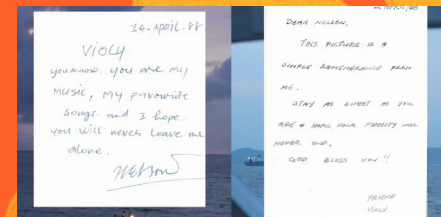 14. April. 88
Violy
you know. you are my
music, my favourite
songs. and I hope.
you will never leave me
alone.
Nelson
DEAR NELSON,
THIS PICTURE IS A
SIMPLE REMEMBERANCE FROM
ME.
STAY AS SWEET AS YOU
ARE & HOPE YOUR FIDELITY WILL
NEVER END.
GOD BLESS YOU !!
FRIEND
VIOLY